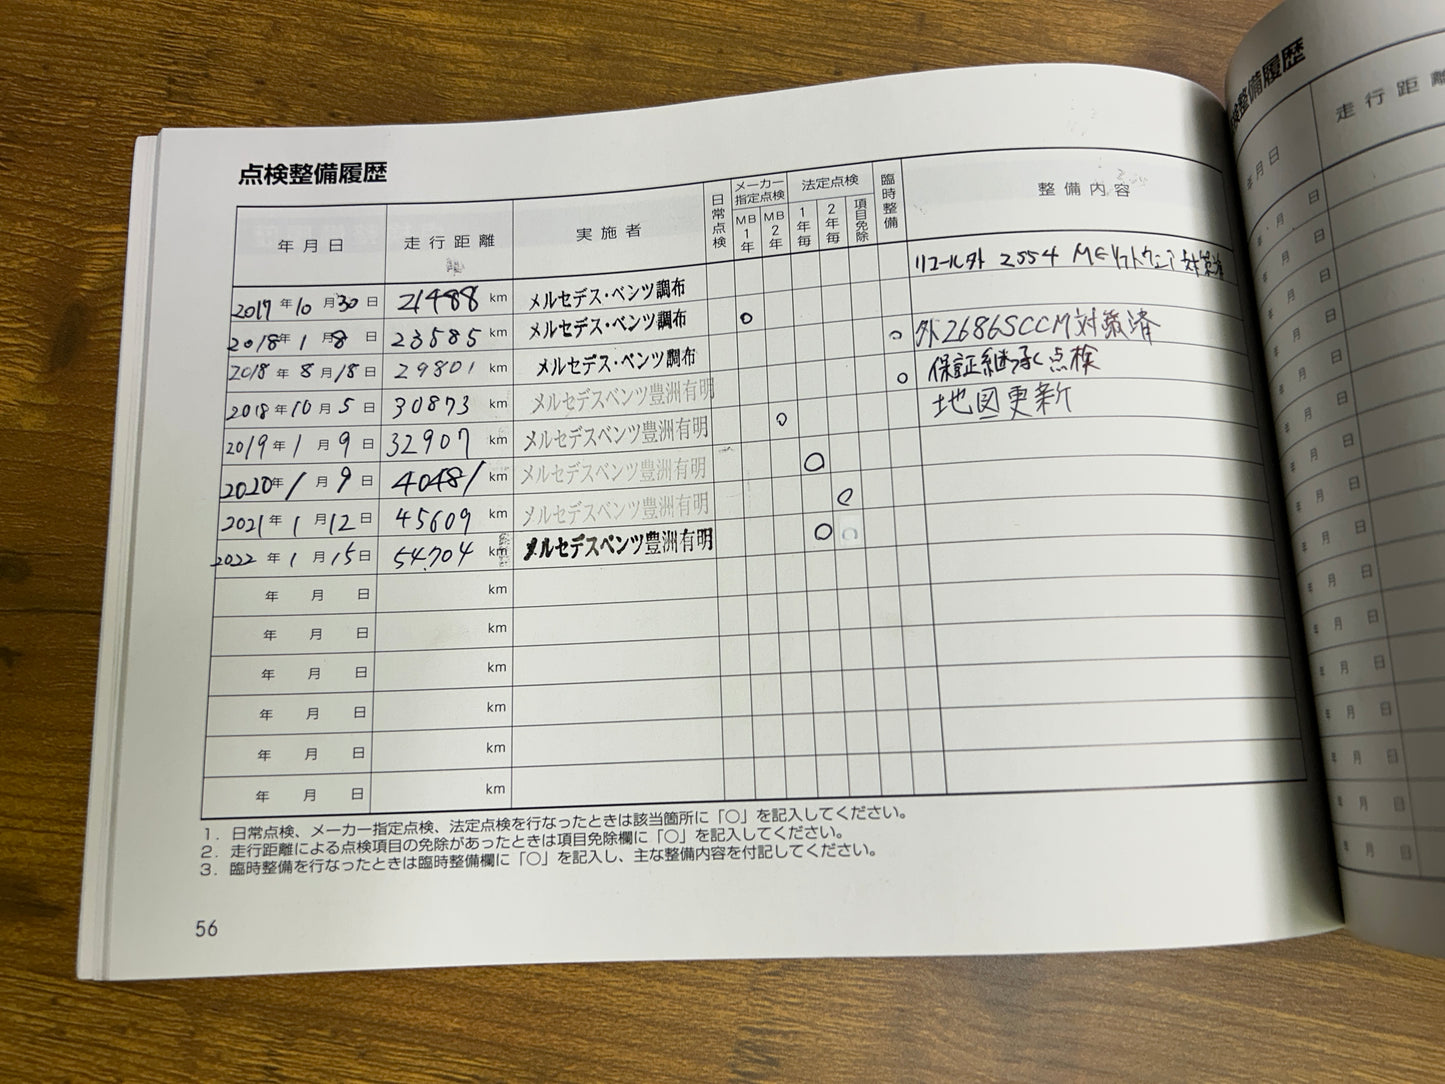 点検整備履歴
年月日 走行距離 実施者 日常点検 メーカー指定点検 MB1年 MB2年 法定点検 1年毎 2年毎 項目免除 臨時整備 整備内容
2017年10月30日 21488 km メルセデス・ベンツ調布 リコール外 2554 MEソフトウェア対策済
2018年1月8日 23585 km メルセデス・ベンツ調布 ○
2018年8月18日 29801 km メルセデス・ベンツ調布 ○ 外2686SCCM対策済
2018年10月5日 30873 km メルセデスベンツ豊洲有明 ○ 保証継承く点検
2019年1月9日 32907 km メルセデスベンツ豊洲有明 ○ 地図更新
2020年1月9日 40481 km メルセデスベンツ豊洲有明 ○
2021年1月12日 45609 km メルセデスベンツ豊洲有明 ○
2022年1月15日 54.704 km メルセデスベンツ豊洲有明 ○ ○
年 月 日 km
年 月 日 km
年 月 日 km
年 月 日 km
年 月 日 km
年 月 日 km
1. 日常点検、メーカー指定点検、法定点検を行なったときは該当箇所に「○」を記入してください。
2. 走行距離による点検項目の免除があったときは項目免除欄に「○」を記入してください。
3. 臨時整備を行なったときは臨時整備欄に「○」を記入し、主な整備内容を付記してください。
56
検整備履歴
年月日 走行距離
年 月 日
年 月 日
年 月 日
年 月 日
年 月 日
年 月 日
年 月 日
年 月 日
年 月 日
年 月 日
年 月 日
年 月 日
年 月 日
年 月 日